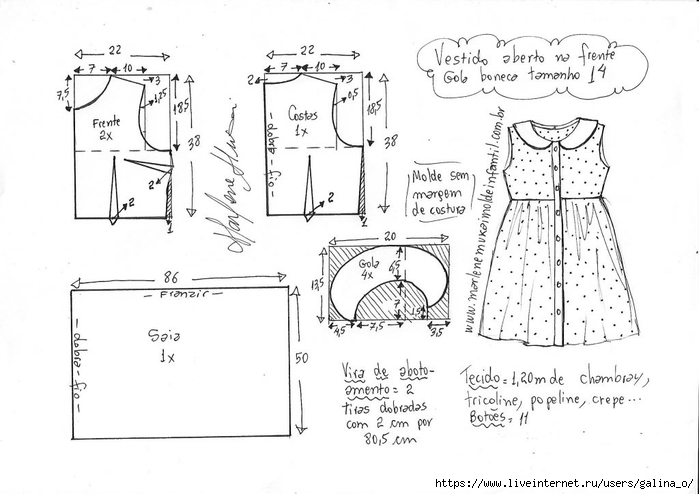 Vestido aberto na frente
Gola boneca tamanho 14
22
7
10
3
7,5
1,25
18,5
38
Frente
2x
2
2
1
22
7
10
2
3
0,5
18,5
38
Costas
1x
- dobra - fio -
2
1
Molde sem
margem
de costura
www.marlenemukaimoldeinfantil.com.br
20
Gola
4x
13,5
6,5
7
1,5
3,5
7,5
3,5
86
- Franzir -
Saia
1x
- dobra - fio -
50
Vira de aboto-
amento = 2
tiras dobradas
com 2 cm por
80,5 cm
Tecido = 1,20m de chambray,
tricoline, popeline, crepe...
Botões = 11
https://www.liveinternet.ru/users/galina_o/